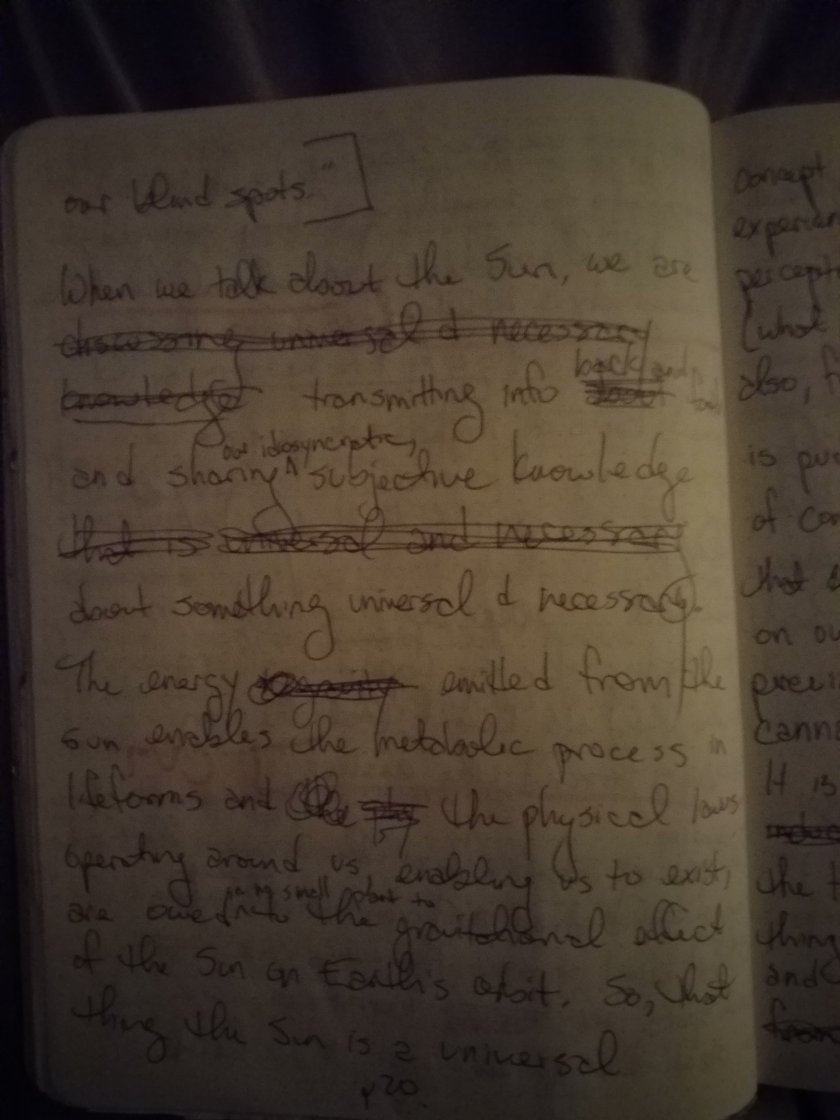 our blind spots."]
When we talk about the Sun, we are
discussing universal & necessary
knowledge transmitting info back and
and sharing our idiosyncratic,
subjective knowledge
that is universal and necessary
about something universal & necessary.
The energy emitted from the
Sun enables the metabolic process in
lifeforms and the the physical laws
operating around us, enabling us to exist,
are owed in no small part to
to the gravitational affect
of the Sun on Earth's orbit. So, that
thing the Sun is a universal
p20.
concept
percept
(what
also, f
is pu
of co
that
on ou
preci
canno
It is
the t
thing
and
from